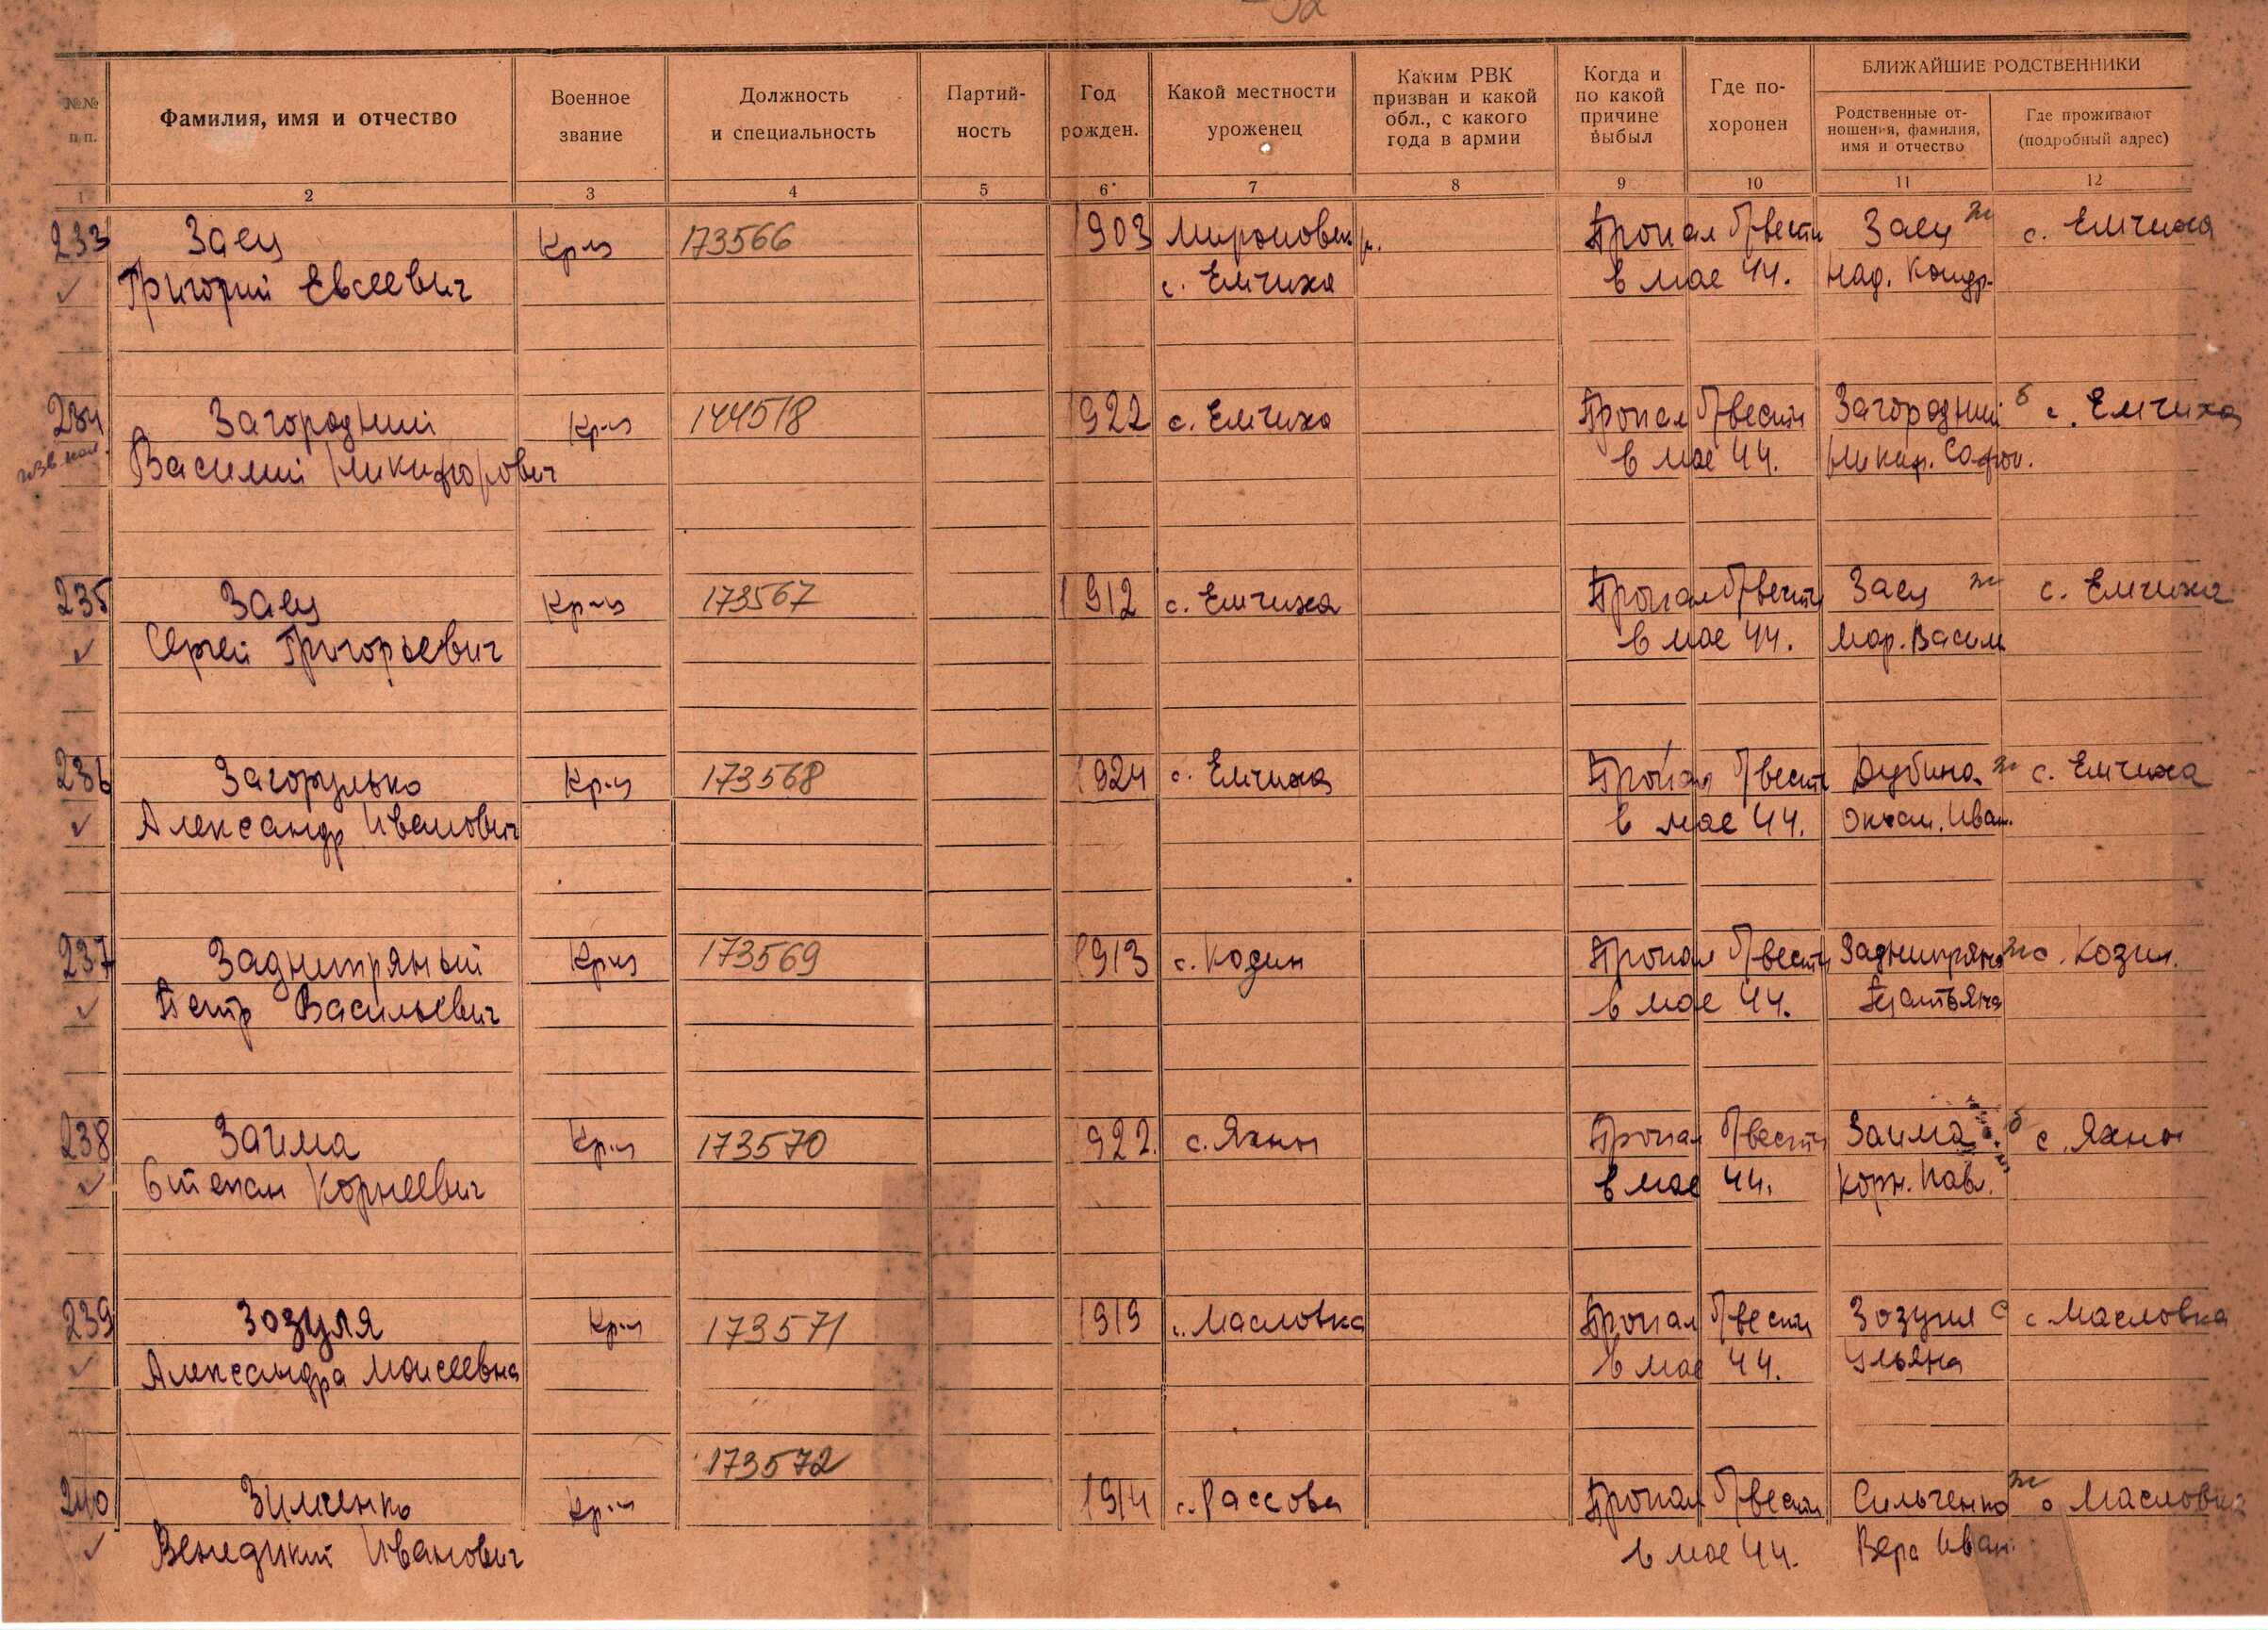 №№ п/п.
Фамилия, имя и отчество
Военное звание
Должность и специальность
Партий-ность
Год рожден.
Какой местности уроженец
Каким РВК призван и какой обл., с какого года в армии
Когда и по какой причине выбыл
Где по-хоронен
БЛИЖАЙШИЕ РОДСТВЕННИКИ
Родственные от-ношения, фамилия, имя и отчество
Где проживают (подробный адрес)
1 2 3 4 5 6 7 8 9 10 11 12
233 Заец Кр-ц 173566 1903 Мироновск р. Пропал б/вести Заец ж с. Емчиха
Григорий Евсеевич с. Емчиха в мае 44. Над. Кондр.
234 Загородний Кр-ц 144518 1922 с. Емчиха Пропал б/вести Загородний б с. Емчиха
Василий Никифорович в мае 44. Никиф. Софон.
235 Заец Кр-ц 173567 1912 с. Емчиха Пропал б/вести Заец ж с. Емчиха
Сергей Григорьевич в мае 44. Мар. Васил.
236 Загорулько Кр-ц 173568 1924 с. Емчиха Пропал б/вести Дубина ж с. Емчиха
Александр Иванович в мае 44. Оксан. Иван.
237 Заднипряный Кр-ц 173569 1913 с. Козин Пропал б/вести Заднипряная ж с. Козин.
Петр Васильевич в мае 44. Татьяна
238 Заима Кр-ц 173570 1922. с. Яхны Пропал б/вести Заима б с. Яхны
Степан Корнеевич в мае 44. Корн. Пав.
239 Зозуля Кр-ц 173571 1919 с. Масловка Пропал б/вести Зозуля с с Масловка
Александра Моисеевна в мае 44. Ульяна
173572
240 Зимченко Кр-ц 1914 с. Рассова Пропал б/вести Сильченко ж с Масловка
Венедикий Иванович в мае 44. Вера Иван.